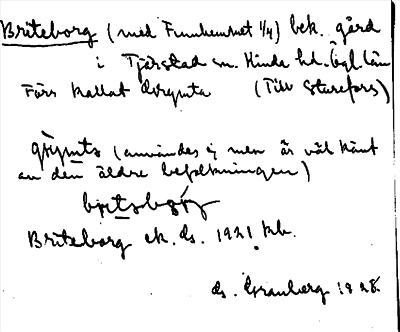 Briteborg (med Funkemhet 1/4) bek. gård
i Tjärstad sn. Kinda hd. Ögl. län
Förr kallat Grymta (Till Sturefors)
grymta (användes ej men är väl känt
av den äldre befolkningen)
Briteborg ek. Gs. 1921 kb.
Gs. Granberg 1928.